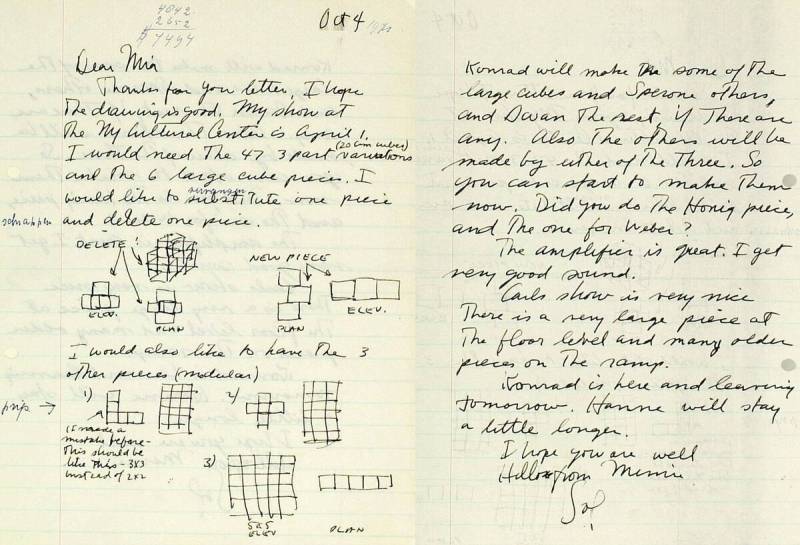 4842
2652
$7494
Oct 4
Dear Mia
Thanks for you letter, I hope
The drawing is good. My show at
The NY Cultural Center is April 1.
(20 cm cubes)
I would need The 47 3 part variations
and the 6 large cube pieces. I
would like to substitute one piece
and delete one piece.
DELETE
NEW PIECE
ELEV.
PLAN
PLAN
ELEV.
I would also like to have The 3
other pieces (modular)
1)
2)
I made a
mistake before-
This should be
like this - 3x3
instead of 2x2
3)
5x5
ELEV
PLAN
Konrad will make some of The
large cubes and Sperone others,
and Dwan The rest, if There are
any. Also The others will be
made by either of The Three. So
you can start to make Them
now. Did you do The Honig piece,
and The one for Weber?
The amplifier is great. I get
very good sound.
Carls show is very nice
There is a very large piece at
The floor level and many older
pieces on The ramp.
Konrad is here and leaving
tomorrow. Hanne will stay
a little longer.
I hope you are well
Hello from Mimi
Sol